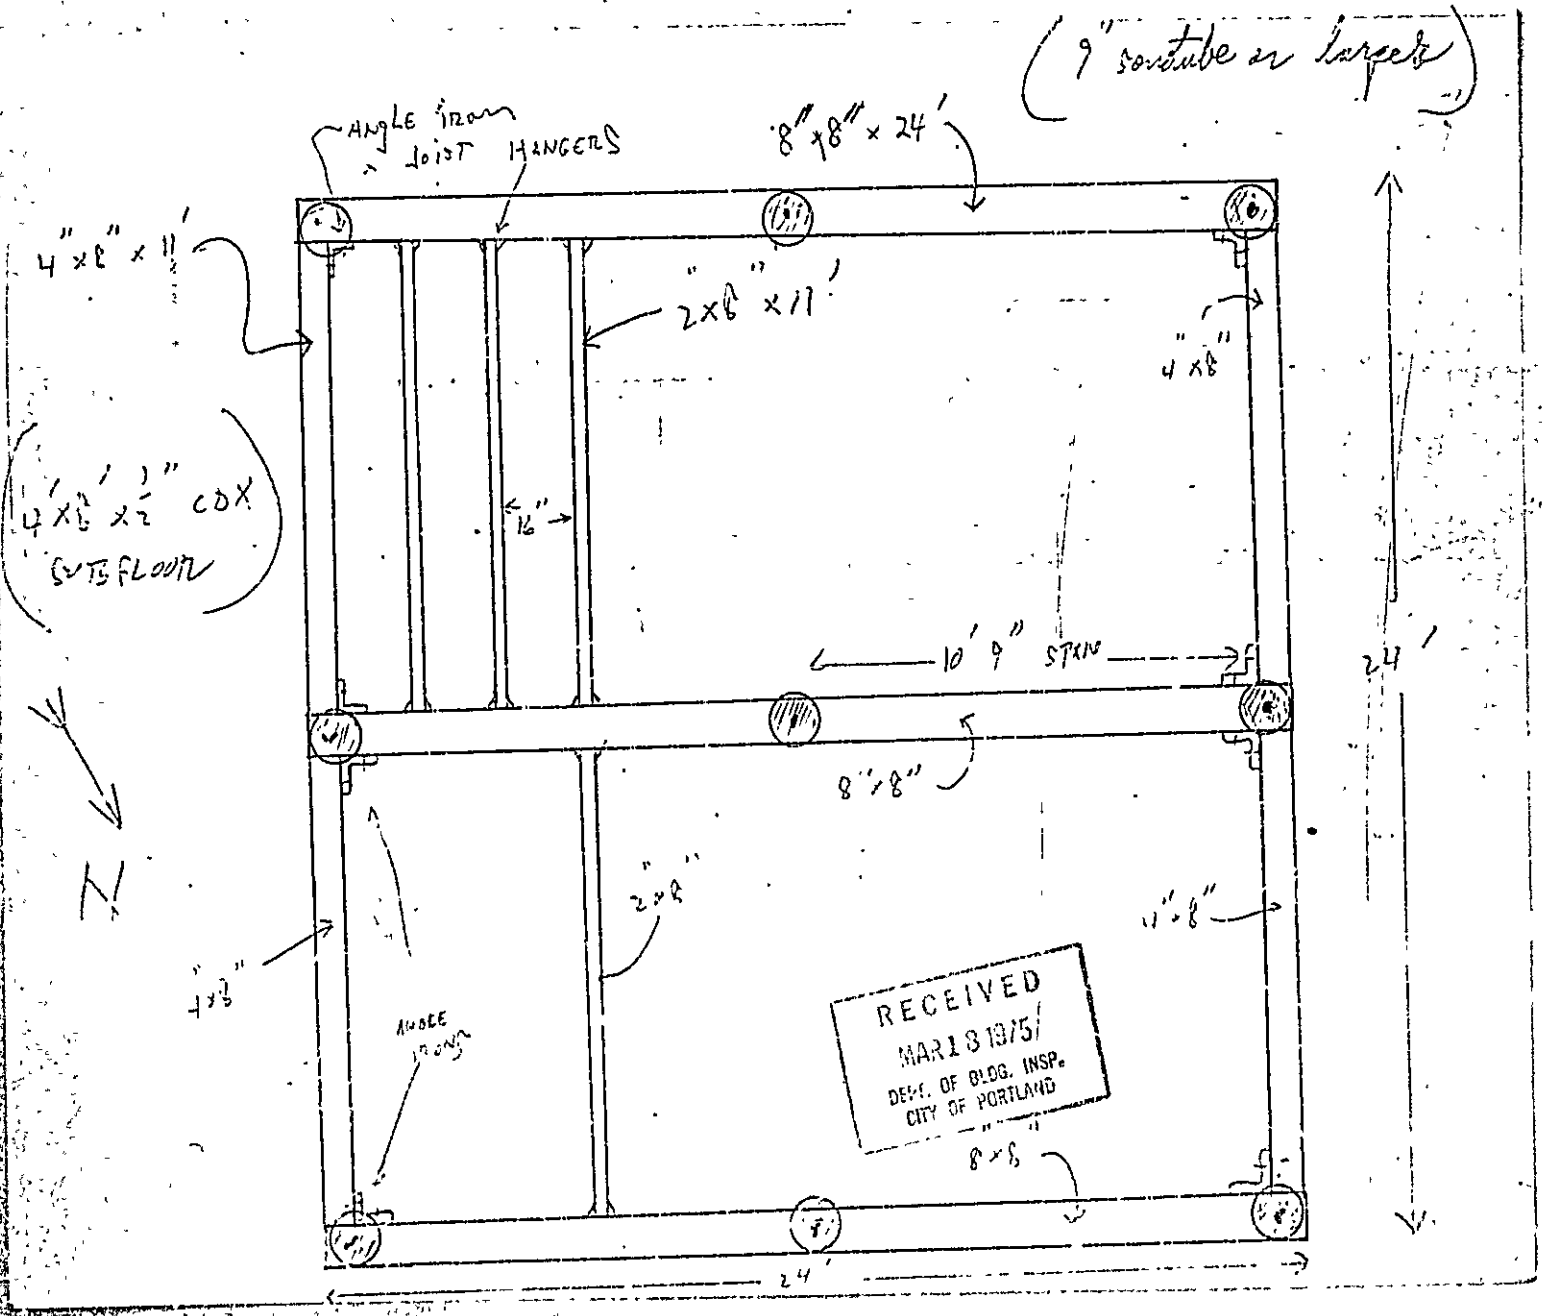 (9" sonotube or larger)
ANGLE iron
JOIST HANGERS
8" x 8" x 24'
4" x 8" x 11'
2" x 8" x 11'
4" x 8"
4' x 8' x 1/2" CDX
SUBFLOOR
16"
10' 9" SPAN
24'
8" x 8"
N
2" x 8"
4" x 8"
4" x 8"
ANGLE
IRONS
RECEIVED
MAR 18 1975
DEPT. OF BLDG. INSP.
CITY OF PORTLAND
8" x 8"
24'